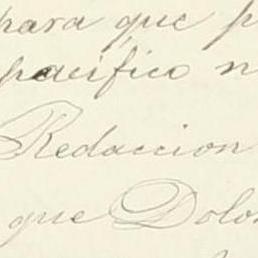 para que p
pacífico n
Redaccion
que Dolo